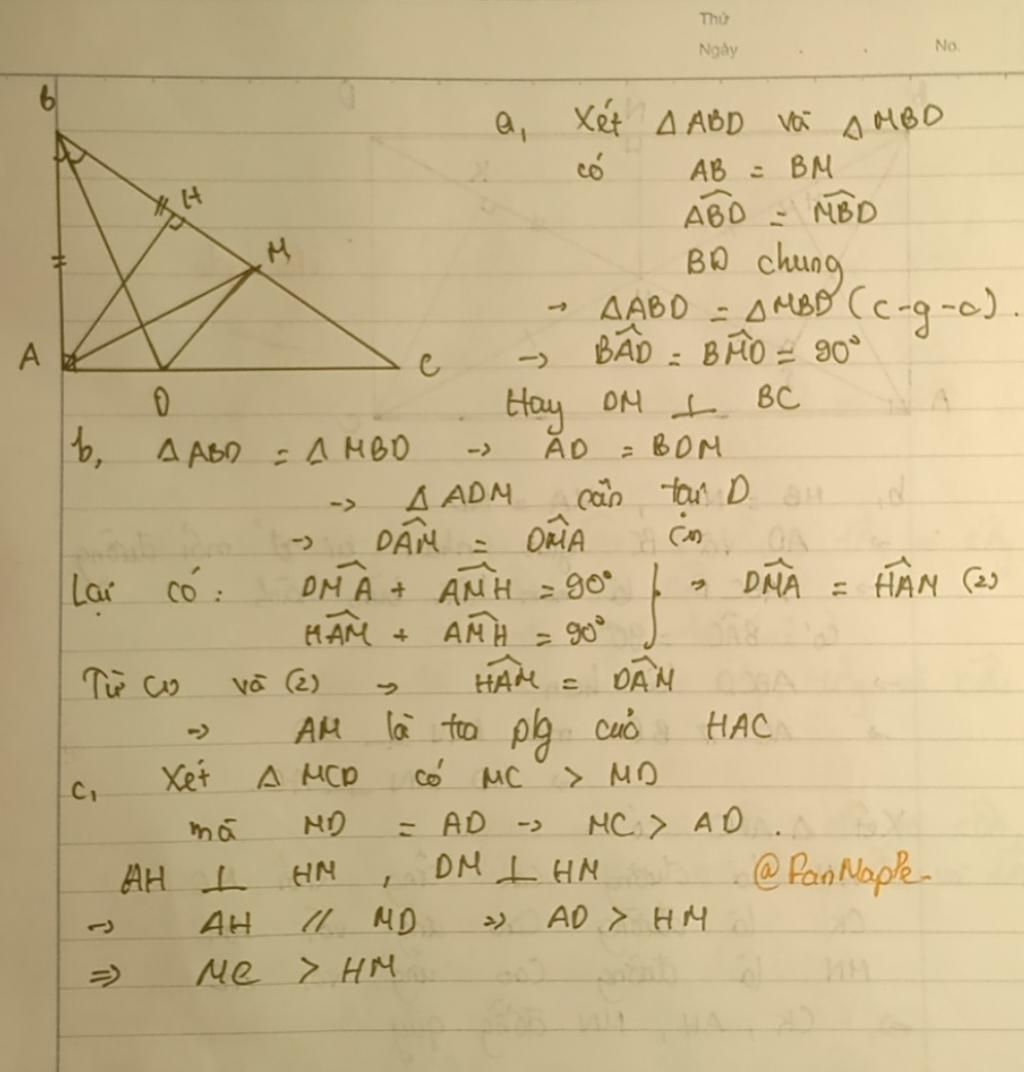 Thứ
Ngày . . No.
B
H
M
A
D
C
a, Xét △ABD và △MBD
có AB = BM
\widehat{ABD} = \widehat{MBD}
BD chung
→ △ABD = △MBD (c-g-c).
→ \widehat{BAD} = \widehat{BMD} = 90°
Hay DM ⊥ BC
b, △ABD = △MBD → AD = BDM
→ △ADM cân tại D
→ \widehat{DAM} = \widehat{DMA} (1)
Lại có: \widehat{DMA} + \widehat{AMH} = 90° } → \widehat{DMA} = \widehat{HAM} (2)
\widehat{HAM} + \widehat{AMH} = 90°
Từ (1) và (2) → \widehat{HAM} = \widehat{DAM}
→ AM là tia plg của HAC
c, Xét △MCD có MC > MD
mà MD = AD → MC > AD.
AH ⊥ HM, DM ⊥ HM
→ AH // MD => AD > HM
=> MC > HM